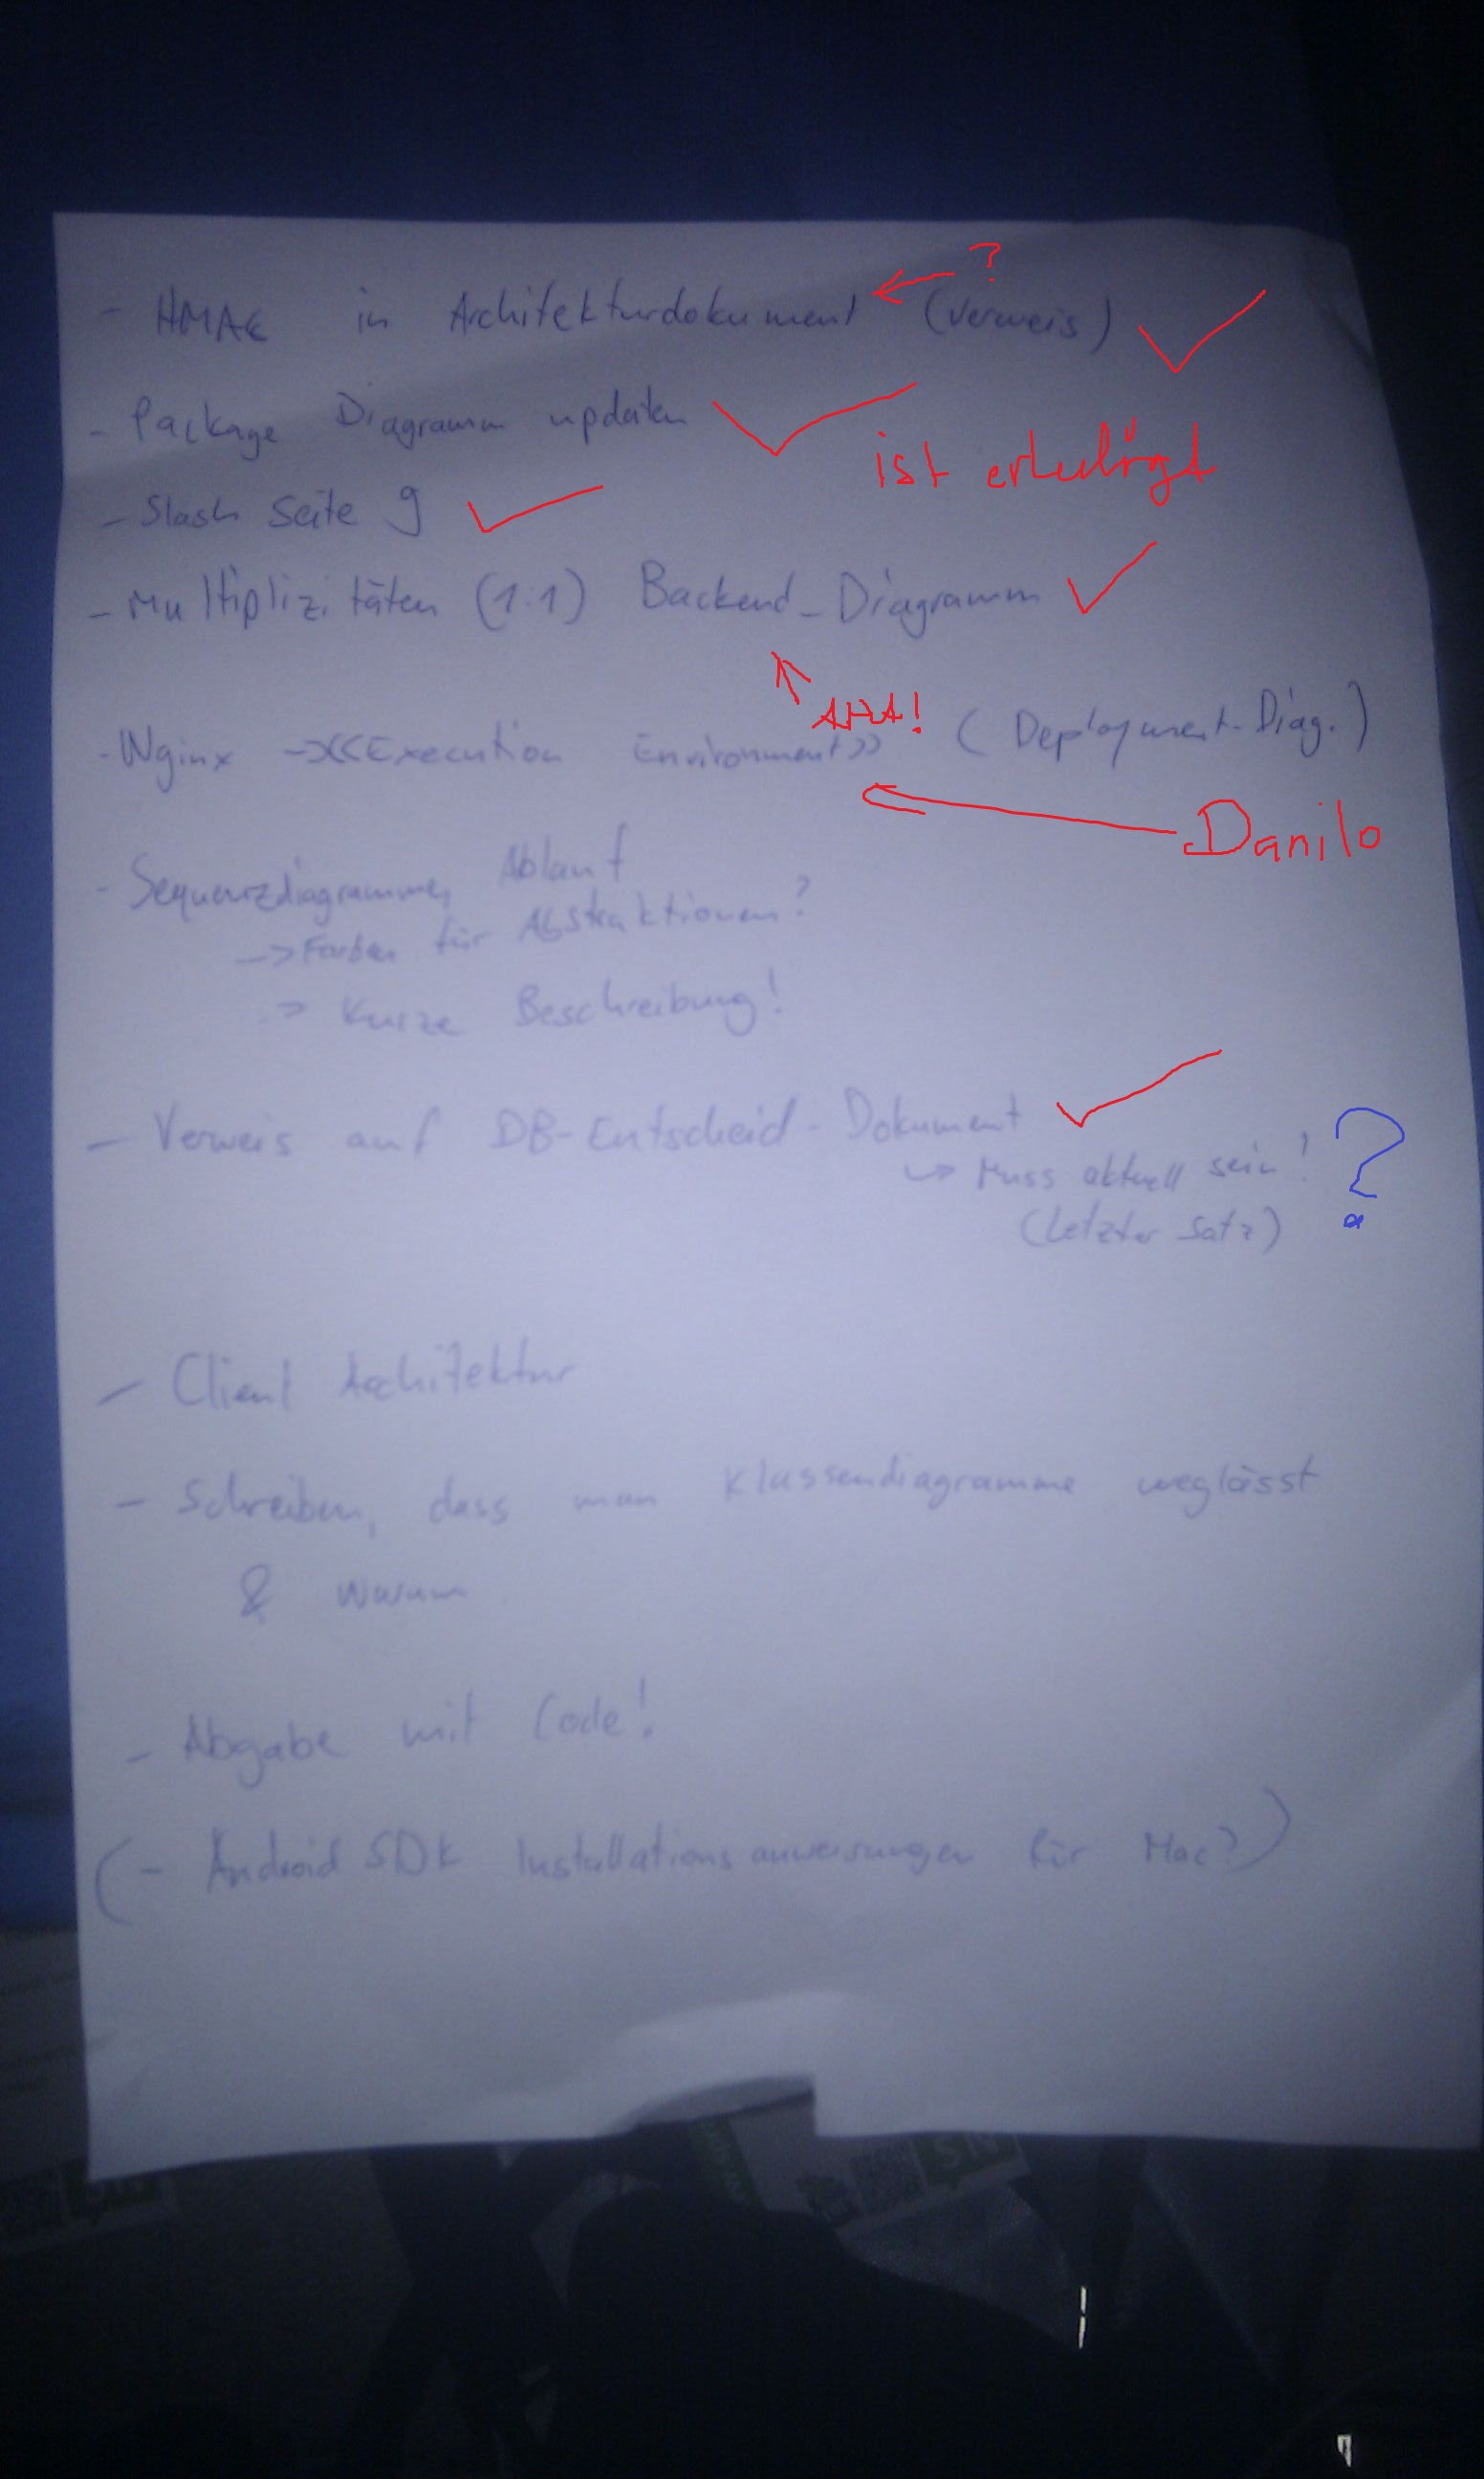 ?
- HMAC in Architekturdokument (Verweis)
- Package Diagramm updaten
ist erledigt
- Slash Seite 9
- Multiplizitäten (1:1) Backend-Diagramm
AHA!
- Nginx -> <<Execution Environment>> (Deployment-Diag.)
Danilo
- Sequenzdiagramme, Ablauf
-> Farben für Abstraktionen?
-> Kurze Beschreibung!
- Verweis auf DB-Entscheid-Dokument
↳ Muss aktuell sein! ?
(Letzter Satz)
- Client Architektur
- Schreiben, dass man Klassendiagramme weglässt
& warum
- Abgabe mit Code!
(- Android SDK Installationsanweisungen für Mac?)